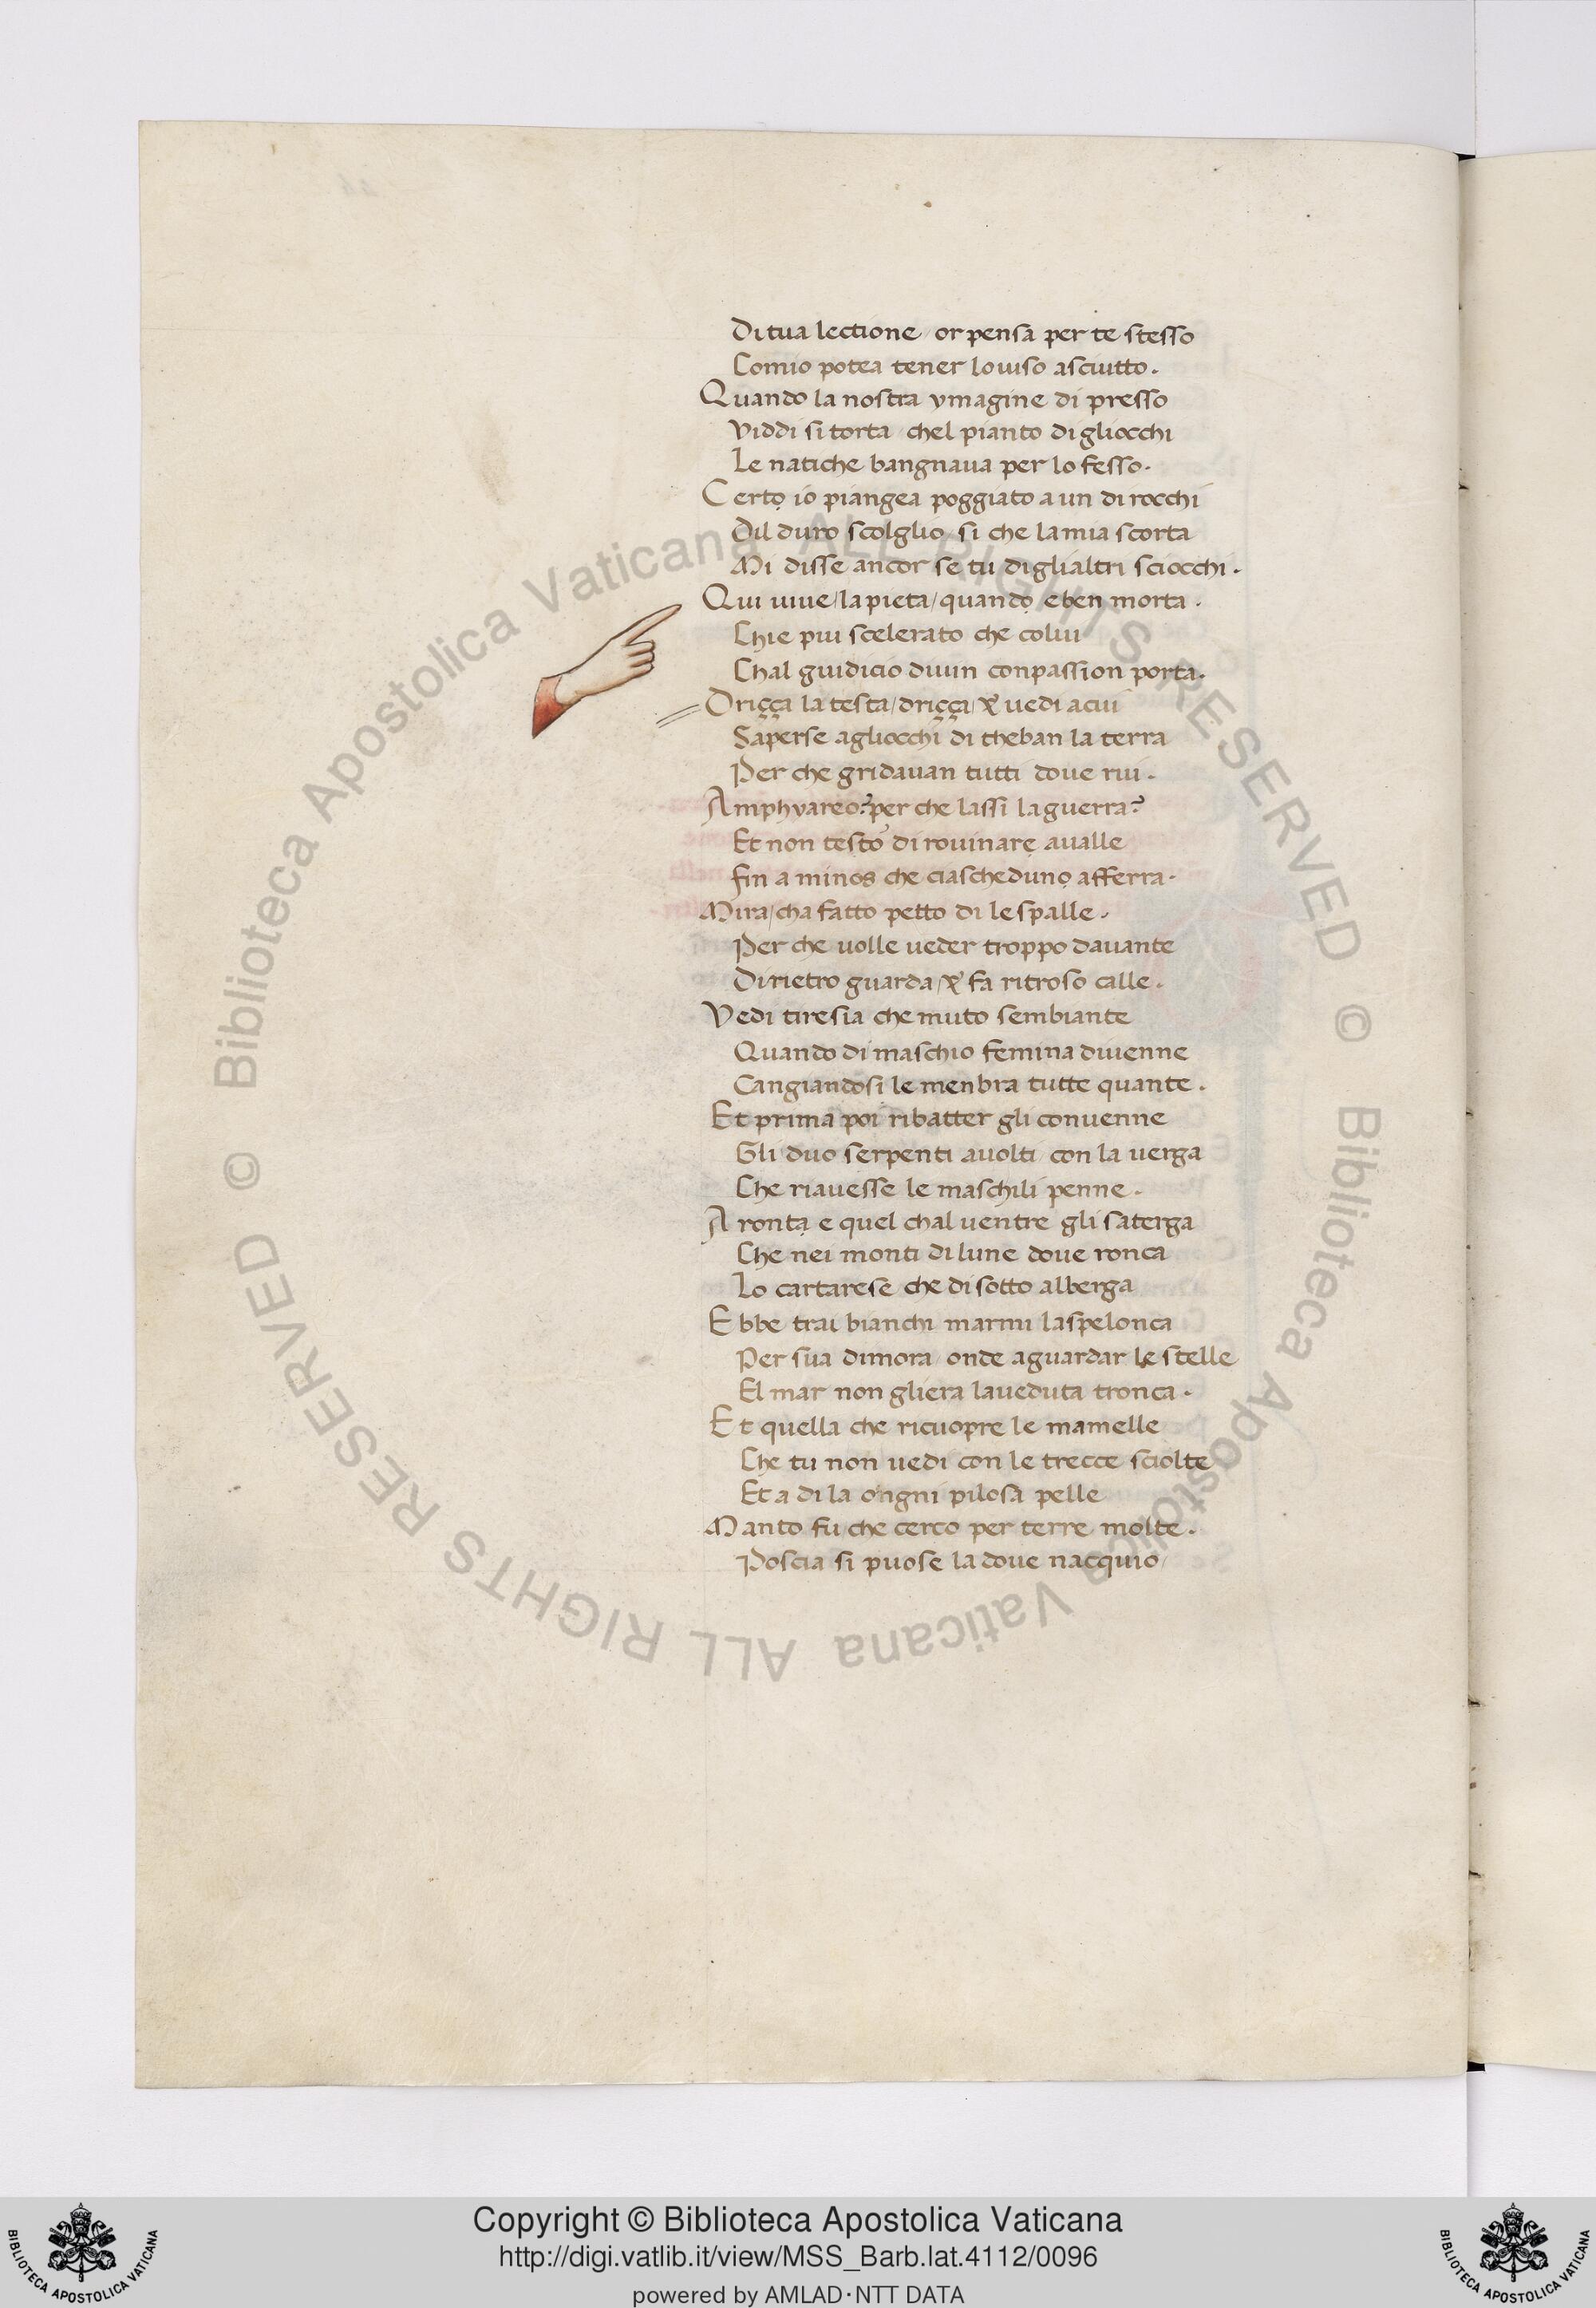 Di tua lectione / or pensa per te stesso
Comio potea tener lo uiso asciutto .
Quando la nostra ymagine di presso
Viddi si torta / chel pianto di gliocchi
Le natiche bangnaua per lo fesso .
Certo io piangea poggiato a un di rocchi
Dil duro scolglio / si che la mia scorta
Mi disse ancor se tu di glialtri sciocchi .
Qui uiue / la pieta / quando e ben morta .
Chi e piu scelerato che colui
Chal guidicio diuin conpassion porta .
Driçça la testa / driçça / & uedi a cui
Saperse agliocchi di theban la terra
Per che gridauan tutti doue rui .
Amphyareo? per che lassi la guerra?
Et non testo di rouinare aualle
fin a minos che ciascheduno afferra .
Mira / cha fatto petto di le spalle .
Per che uolle ueder troppo dauante
Dirietro guarda / & fa ritroso calle .
Vedi tiresia che muto sembiante
Quando di maschio femina diuenne
Cangiandosi le menbra tutte quante .
Et prima poi ribatter gli conuenne
Gli duo serpenti auolti / con la uerga
Che riauesse le maschili penne .
Aronta e quel chal uentre gli saterga
Che nei monti di lune doue ronca
Lo cartarese che di sotto alberga
Ebbe trai bianchi marmi la spelonca
Per sua dimora / onde a guardar le stelle
El mar non gliera la ueduta tronca .
Et quella che ricuopre le mamelle
Che tu non uedi con le trecce sciolte
Et a di la ongni pilosa pelle
Manto fu / che cerco per terre molte .
Poscia si puose la doue nacquio /
© Biblioteca Apostolica Vaticana ALL RIGHTS RESERVED © Biblioteca Apostolica Vaticana ALL RIGHTS RESERVED
Copyright © Biblioteca Apostolica Vaticana
http://digi.vatlib.it/view/MSS_Barb.lat.4112/0096
powered by AMLAD·NTT DATA
BIBLIOTECA APOSTOLICA VATICANA
BIBLIOTECA APOSTOLICA VATICANA